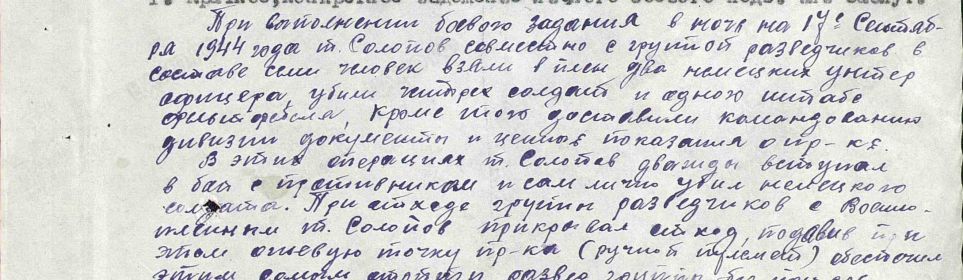 При выполнении боевого задания в ночь на 17е Сентяб-
ря 1944 года т. Солопов совместно с группой разведчиков в
составе семи человек взяли в плен два немецких унтер
офицера, убили четырех солдат и одного штабс
фельтфебеля, кроме того доставили командованию
дивизии документы и ценные показания о пр-ке.
В этих операциях т. Солопов дважды вступал
в бой с противником и сам лично убил немецкого
солдата. При отходе группы разведчиков с Военно-
пленным т. Солопов прикрывал отход, подавив при
этом огневую точку пр-ка (ручной пулемет) обеспечил
этим самым развед группы без